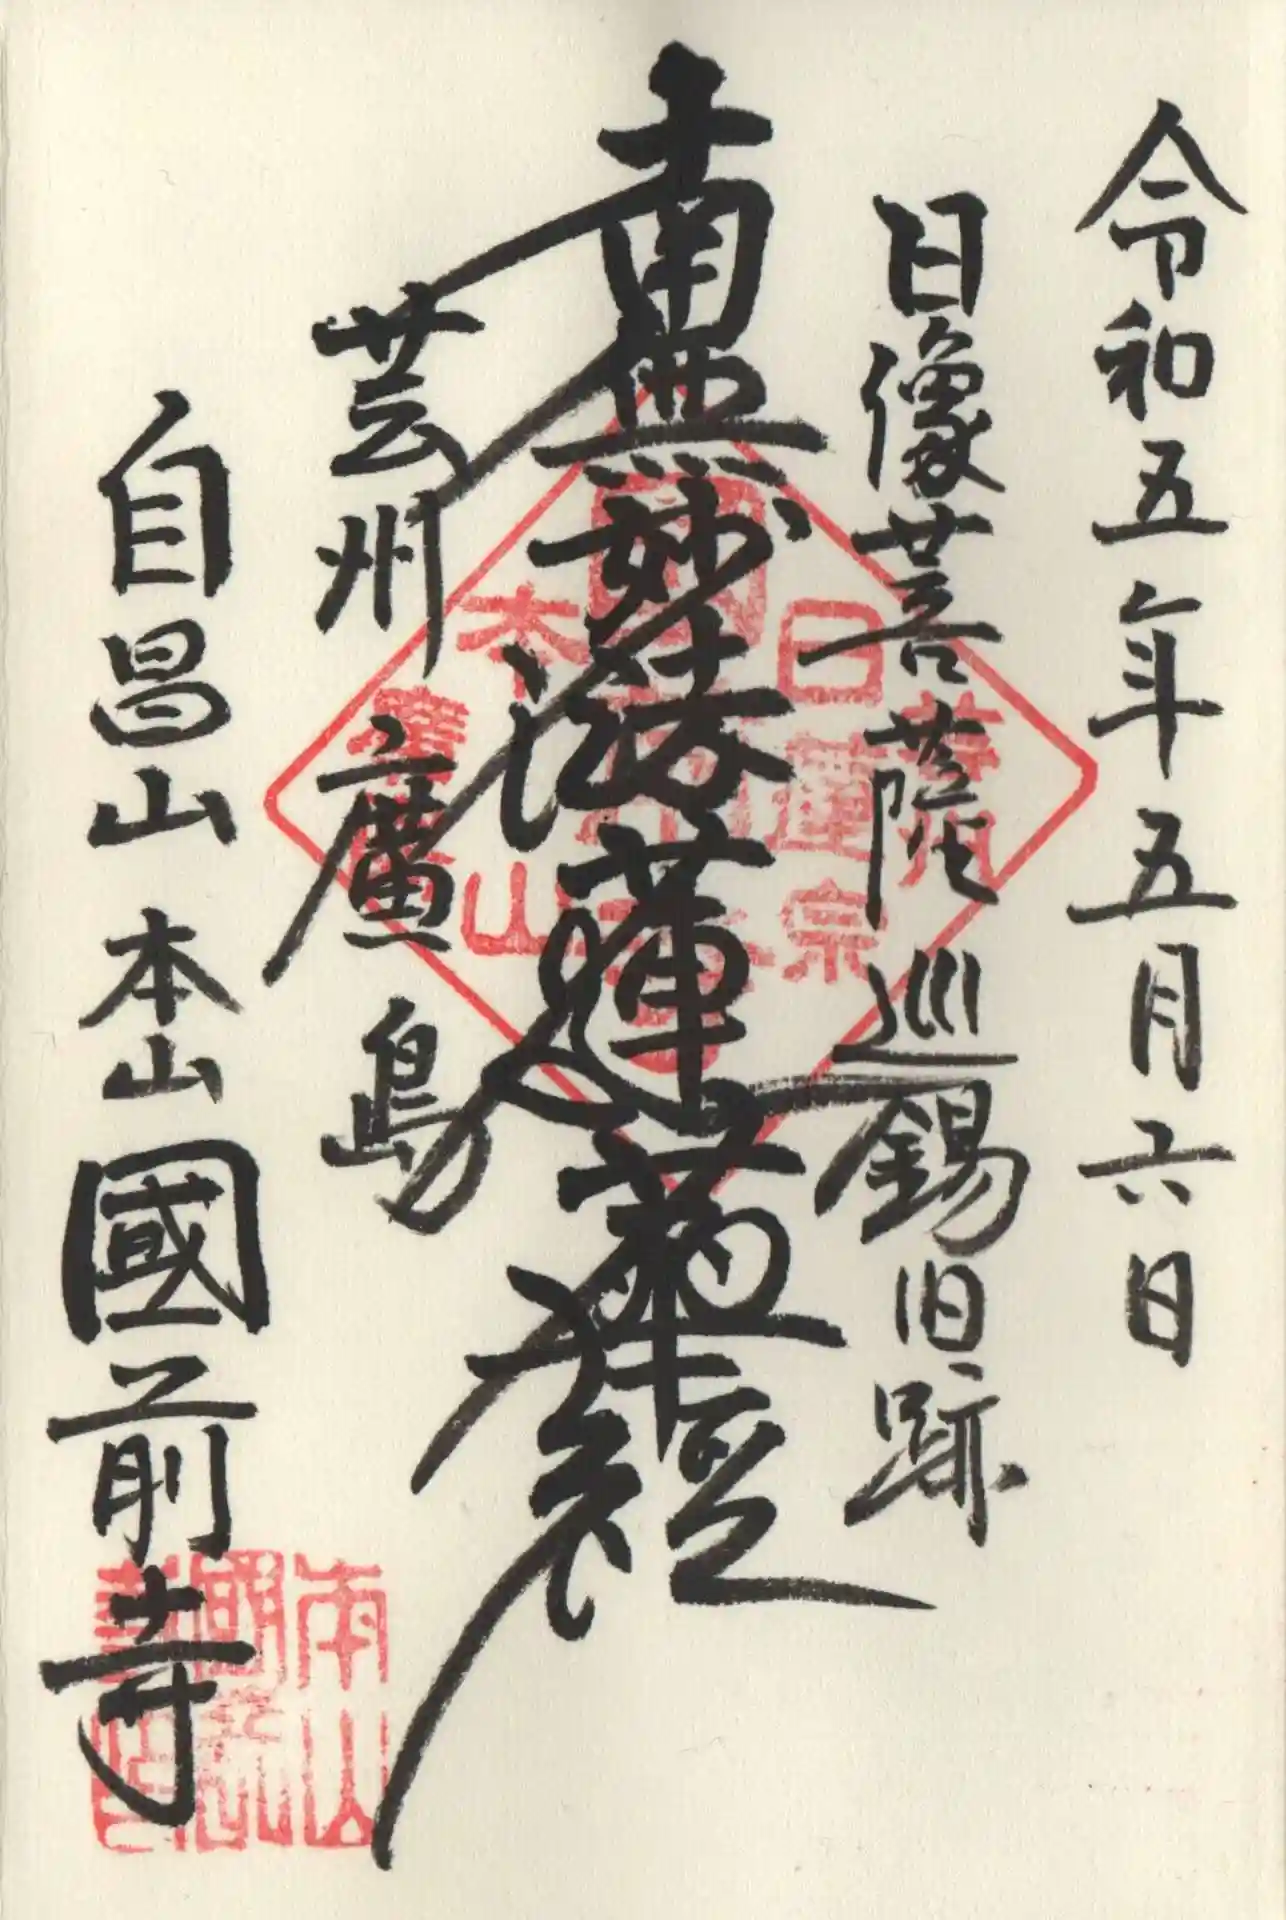 令和五年五月六日
日像菩薩巡錫旧跡
南無妙法蓮華経
芸州廣島
自昌山本山國前寺
日蓮宗
本山